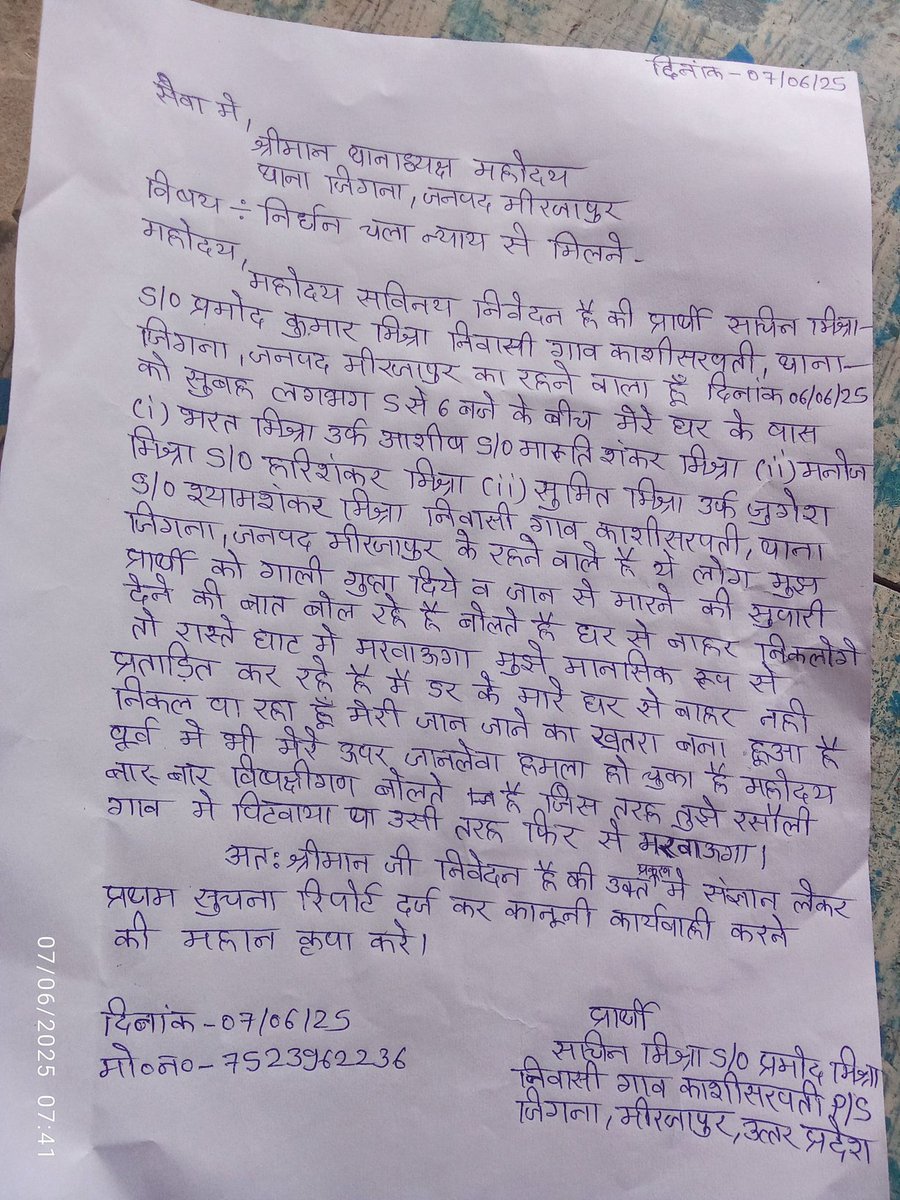 दिनांक - 07/06/25
सेवा में,
श्रीमान थानाध्यक्ष महोदय
थाना जिगना, जनपद मीरजापुर
विषय ÷ निर्धन चला न्याय से मिलने -
महोदय,
महोदय सविनय निवेदन है की प्रार्थी सचिन मिश्रा -
S/O प्रमोद कुमार मिश्रा निवासी गाव काशीसरपती, थाना -
जिगना, जनपद मीरजापुर का रहने वाला हूँ दिनांक 06/06/25
को सुबह लगभग 5 से 6 बजे के बीच मेरे घर के पास
(i) भरत मिश्रा उर्फ आशीष S/O मारूति शंकर मिश्रा (ii) मनोज
मिश्रा S/O हरिशंकर मिश्रा (ii) सुमित मिश्रा उर्फ जुगेश
S/O श्यामशंकर मिश्रा निवासी गाव काशीसरपती, थाना
जिगना, जनपद मीरजापुर के रहने वाले है ये लोग मुझ
प्रार्थी को गाली गुप्ता दिये व जान से मारने की सुपारी
देने की बात बोल रहे है बोलते है घर से बाहर निकलोगे
तो रास्ते घाट मे मरवाऊगा मुझे मानसिक रूप से
प्रताड़ित कर रहे है मै डर के मारे घर से बाहर नही
निकल पा रहा हूँ मेरी जान जाने का खतरा बना हुआ है
पूर्व मे भी मेरे ऊपर जानलेवा हमला हो चुका है महोदय
बार-बार विपक्षीगण बोलते है जिस तरह तुझे रसौली
गाव मे पिटवाया था उसी तरह फिर से मरवाऊगा।
अतः श्रीमान जी निवेदन है की उक्त प्रकरण मे संज्ञान लेकर
प्रथम सुचना रिपोर्ट दर्ज कर कानूनी कार्यवाही करने
की महान कृपा करे।
दिनांक - 07/06/25
मो०न० - 7523962236
प्रार्थी
सचिन मिश्रा S/O प्रमोद मिश्रा
निवासी गाव काशीसरपती P/S
जिगना, मीरजापुर, उत्तर प्रदेश
07/06/2025 07:41